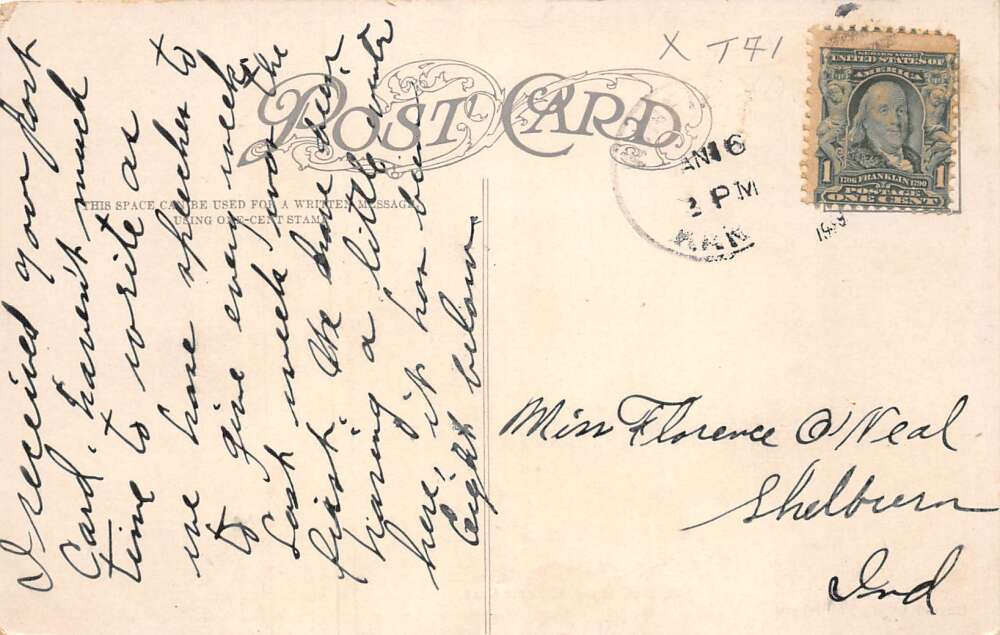 I received your post
Card. haven't much
time to write as
we have speeches to
to give every week
Last week was the
first. We have been
having a little winter
here, it has been
eight below.
POST CARD
THIS SPACE CAN BE USED FOR A WRITTEN MESSAGE,
USING ONE-CENT STAMP
X T41
AN 16
2 PM
KAN
UNITED STATES OF
AMERICA
1706 FRANKLIN 1790
1 1
POSTAGE
ONE CENT
Miss Florence O'Neal
Shelburn
Ind